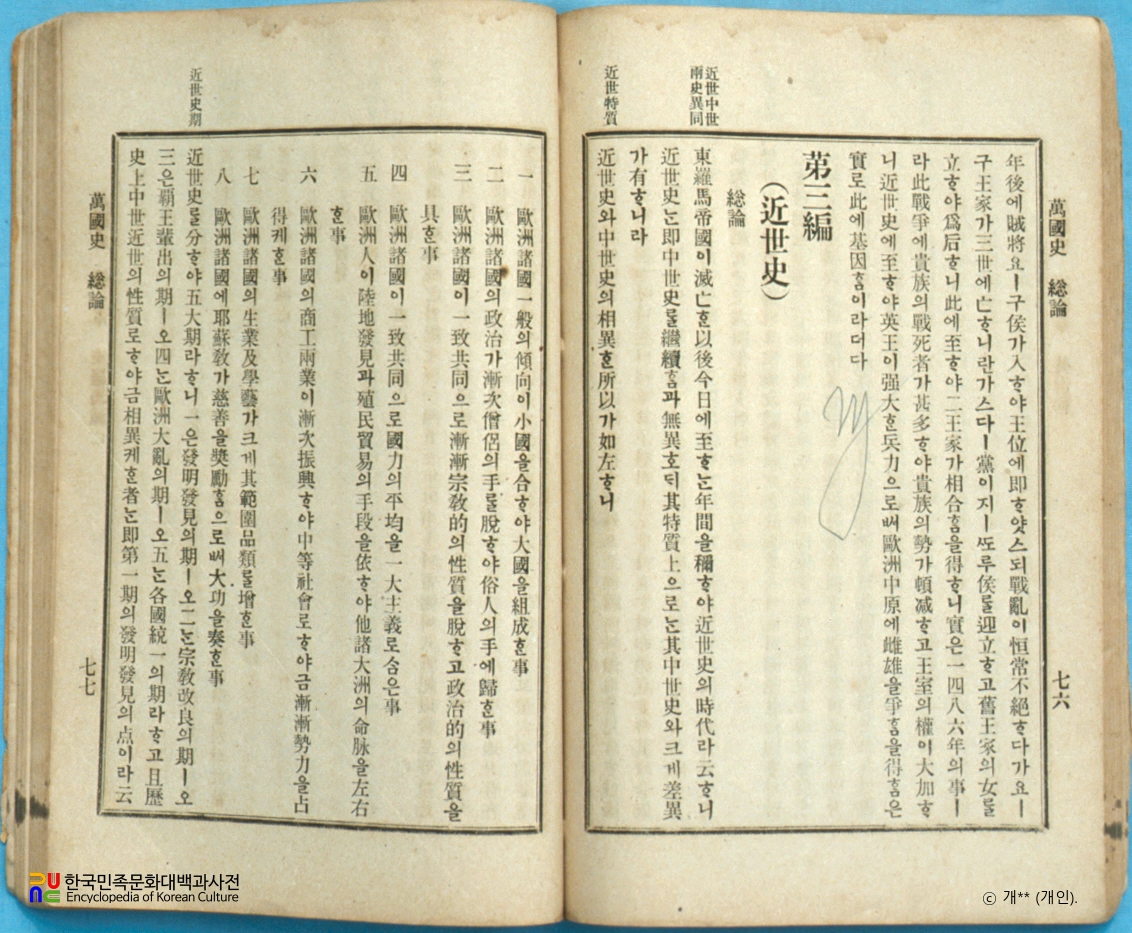 近世中世
兩史異同
近世特質
萬國史 総論
七六
年後에賊將요ㅣ구侯가入ᄒᆞ야王位에即ᄒᆞ얏스되戰亂이恒常不絕ᄒᆞ다가요ㅣ
구王家가三世에亡ᄒᆞ니란가스다ㅣ黨이지ㅣᄯᅩ루侯ᄅᆞᆯ迎立ᄒᆞ고舊王家의女ᄅᆞᆯ
立ᄒᆞ야爲后ᄒᆞ니此에至ᄒᆞ야二王家가相合ᄒᆞᆷ을得ᄒᆞ니實은一四八六年의事ㅣ
라此戰爭에貴族의戰死者가甚多ᄒᆞ야貴族의勢가頓减ᄒᆞ고王室의權이大加ᄒᆞ
니近世史에至ᄒᆞ야英王이强大ᄒᆞᆫ兵力으로ᄡᅥ歐洲中原에雌雄을爭ᄒᆞᆷ을得ᄒᆞᆷ은
實로此에基因ᄒᆞᆷ이라더다
第三編
(近世史)
総論
東羅馬帝國이滅亡ᄒᆞᆫ以後今日에至ᄒᆞᄂᆞᆫ年間을稱ᄒᆞ야近世史의時代라云ᄒᆞ니
近世史ᄂᆞᆫ即中世史ᄅᆞᆯ繼續ᄒᆞᆷ과無異호ᄃᆡ其特質上으로ᄂᆞᆫ其中世史와크게差異
가有ᄒᆞ니라
近世史와中世史의相異ᄒᆞᆫ所以가如左ᄒᆞ니
近世史期
一 歐洲諸國一般의傾向이小國을合ᄒᆞ야大國을組成ᄒᆞᆫ事
二 歐洲諸國의政治가漸次僧侶의手ᄅᆞᆯ脫ᄒᆞ야俗人의手에歸ᄒᆞᆫ事
三 歐洲諸國이一致共同으로漸漸宗敎的의性質을脫ᄒᆞ고政治的의性質을
具ᄒᆞᆫ事
四 歐洲諸國이一致共同으로國力의平均을一大主義로숨은事
五 歐洲人이陸地發見과殖民貿易의手段을依ᄒᆞ야他諸大洲의命脉을左右
ᄒᆞᆫ事
六 歐洲諸國의商工兩業이漸次振興ᄒᆞ야中等社會로ᄒᆞ야금漸漸勢力을占
得케ᄒᆞᆫ事
七 歐洲諸國의生業及學藝가크게其範圍品類ᄅᆞᆯ增ᄒᆞᆫ事
八 歐洲諸國에耶蘇敎가慈善을奬勵ᄒᆞᆷ으로ᄡᅥ大功을奏ᄒᆞᆫ事
近世史ᄅᆞᆯ分ᄒᆞ야五大期라ᄒᆞ니一은發明發見의期ㅣ오二ᄂᆞᆫ宗敎改良의期ㅣ오
三은覇王輩出의期ㅣ오四ᄂᆞᆫ歐洲大亂의期ㅣ오五ᄂᆞᆫ各國統一의期라ᄒᆞ고且歷
史上中世近世의性質로ᄒᆞ야금相異케ᄒᆞᆫ者ᄂᆞᆫ即第一期의發明發見의点이라云
萬國史 総論
七七
한국민족문화대백과사전
Encyclopedia of Korean Culture
ⓒ 개** (개인).